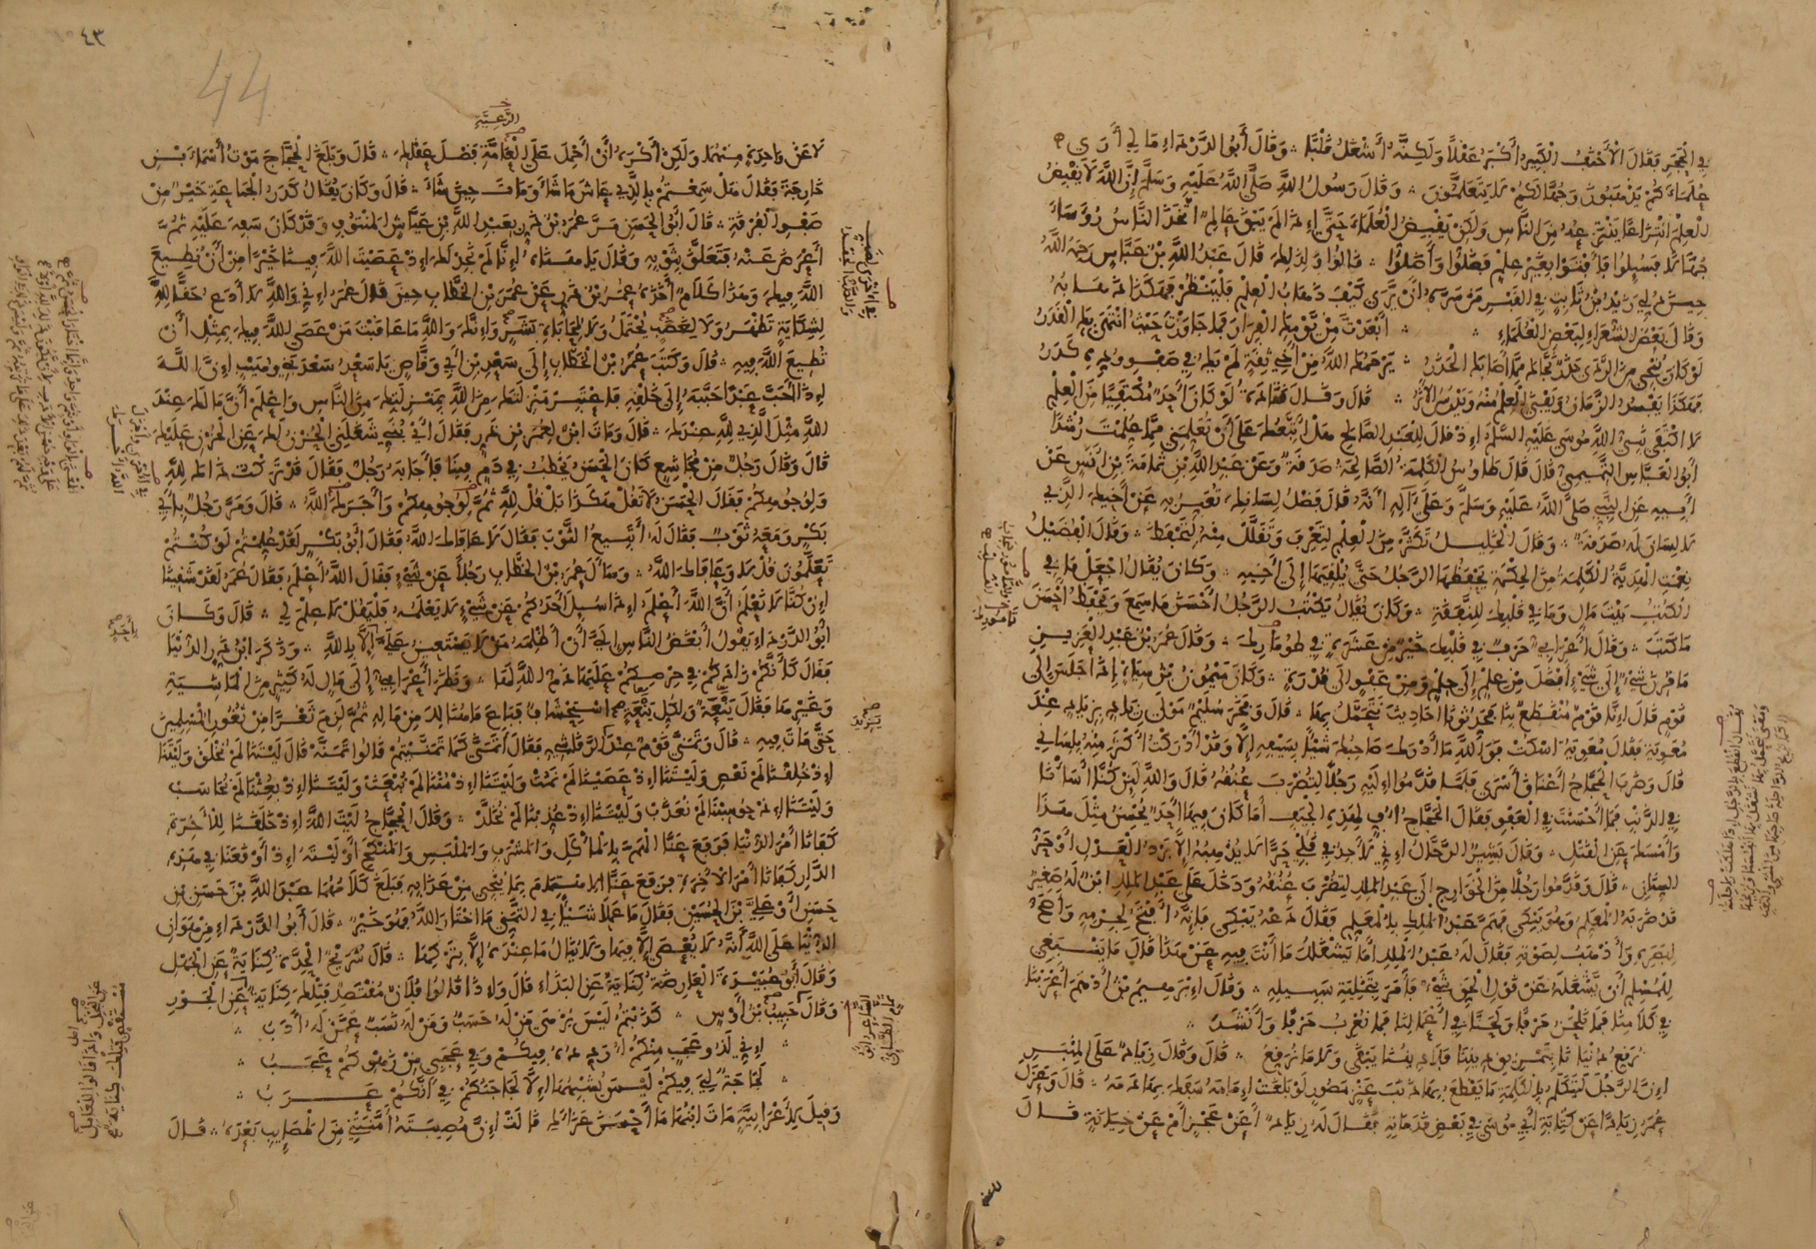 في الحجر فقال الأحنف الكبير أكبر عقلاً ولكنه أشغل قلبا وقال أبو الدرداء ما لي أرى
علماءكم يذهبون وجهالكم لا يتعلمون وقال رسول الله صلى الله عليه وسلم إن الله لا يقبض
العلم انتزاعا ينتزعه من الناس ولكن يقبض العلماء حتى إذا لم يبق عالم اتخذ الناس رؤساء
جهالا فسيلوا فأفتوا بغير علم فضلوا وأضلوا قالوا ولذلك قال عبد الله بن عباس رحمه الله
حين دلي زيد بن ثابت في القبر من سره أن يرى كيف ذهاب العلم فلينظر فهكذا ذهابه
وقال بعض الشعراء لبعض العلماء أبعدت من يومك الفرار فما جاوزت حيث انتهى بك القدر
لو كان ينجي من الردى حذر نجاك مما أصابك الحذر يرحمك الله من أخي ثقة لم يك في صفو وده كدر
فهكذا يفسد الزمان ويفنى العلم منه ويدرس الأثر قال وقال قتادة لو كان أحد مكتفيا من العلم
لاكتفى نبي الله موسى عليه السلام إذ قال للعبد الصالح هل أتبعك على أن تعلمني مما علمت رشدا
أبو العباس التميمي قال قال طاوس الكلمة الصالحة صدقة وعن عبد الله بن ثمامة بن أنس عن
أبيه عن النبي صلى الله عليه وسلم وعلى آله أنه قال فضل لسانك تعبر به عن أخيك الذي
لا لسان له صدقة وقال الخليل تكثر من العلم لتعرف وتقلل منه لتحفظ وقال الفضيل
نعمت الهدية الكلمة من الحكمة يحفظها الرجل حتى يلقيها إلى أخيه وكان يقال اجعل ما في
الكتب بيت مال وما في قلبك للنفقة وكان يقال يكتب الرجل أحسن ما سمع ويحفظ أحسن
ما كتب وقال أعرابي حرف في قلبك خير من عشرة في طومارك وقال عمر بن عبد العزيز
ما قرن شيء إلى شيء أفضل من علم إلى حلم ومن عفو إلى قدرة وكان ميمون بن سياه إذا جلس إلى
قوم قال إنا قوم منقطع بنا فحدثونا أحاديث نتجمل بها قال وفخر سليم مولى زياد بزياد عند
معوية فقال معوية اسكت فوالله ما أدرك صاحبك شيئا بسيفه إلا وقد أدركت أكثر منه بلساني
قال وضرب الحجاج أعناق أسرى فلما قدموا إليه رجلا لتضرب عنقه قال والله لئن كنا أسأنا
في الذنب فما أحسنت في العفو فقال الحجاج أف لهذه الجيف أما كان فيها أحد يحسن مثل هذا
وأمسك عن القتل وقال بشير الرحال إني لأجد في قلبي حرا لا يذهبه إلا برد العدل أو حر
السنان قال وقدموا رجلا من الخوارج إلى عبد الملك لتضرب عنقه ودخل على عبد الملك ابن له صغير
قد ضربه المعلم وهو يبكي فهم عبد الملك بالمعلم فقال دعه يبكي فإنه أفتح لجرمه وأصح
لبصره وأذهب لصوته فقال له عبد الملك أما يشغلك ما أنت فيه عن هذا قال ما ينبغي
للمسلم أن يشغله عن قول الحق شيء فأمر بتخلية سبيله وقال إبرهيم بن أدهم أعربنا
في كلامنا فما نلحن حرفا ولحنا في أعمالنا فما نعرب حرفا وأنشد
نرقع دنيانا بتمزيق ديننا فلا ديننا يبقى ولا ما نرقع قال وقال زياد على المنبر
إن الرجل ليتكلم بالكلمة ما يقطع بها ذنب عنز مصور لو بلغت إمامه سفك بها دمه قال وعزل
عمر زيادا عن كتابة أبي موسى في بعض قدماته فقال له زياد أعن عجز أم عن خيانة قال
٤٣
44
الرعية
لا عن واحدة منهما ولكن أكره أن أحمل على العامة فضل عقلك قال وبلغ الحجاج موت أسماء بن
خارجة فقال هل سمعتم بالذي عاش ما شاء ومات حين شاء قال وكان يقال كدر الجماعة خير من
صفو الفرقة قال أبو الحسن مر عمر بن ذر بعبد الله بن عياش المنتوف وقد كان سفه عليه ثم
أعرض عنه فتعلق بثوبه وقال يا هناه إنا لم نجد لك إذ عصيت الله فينا خيرا من أن نطيع
الله فيك وهذا كلام أخذه عمر بن ذر عن عمر بن الخطاب حين قال عمر إني والله لا أدع حقا لله
لشكاية تظهر ولا لغضب يحتمل ولا لمحاباة بشر وإنك والله ما عاقبت من عصى الله فيك بمثل أن
تطيع الله فيه قال وكتب عمر بن الخطاب إلى سعد بن أبي وقاص يا سعد سعد بني وهيب إن الله
إذا أحب عبدا حببه إلى خلقه فاعتبر منزلتك من الله بمنزلتك من الناس واعلم أن ما لك عند
الله مثل الذي لله عندك قال ومات ابن لعمر بن ذر فقال أي بني شغلني الحزن لك عن الحزن عليك
قال وقال رجل من مجاشع كان الحسن يخطب في دم فينا فأجابه رجل فقال قد تركت ذلك لله
ولوجوهكم فقال الحسن لا تقل هكذا بل قل لله ثم لوجوهكم وآجرك الله قال ومر رجل بأبي
بكر ومعه ثوب فقال له أتبيع الثوب فقال لا عافاك الله فقال أبو بكر لقد علمتم لو كنتم
تعلمون قل لا وعافاك الله وسأل عمر بن الخطاب رجلا عن شيء فقال الله أعلم فقال عمر لقد شقينا
إن كنا لا نعلم أن الله أعلم إذا سيل أحدكم عن شيء لا يعلمه فليقل لا علم لي قال وكان
أبو الدرداء يقول أبغض الناس إلي أن أظلمه من لا يستعين علي إلا بالله وذكر ابن ذر الدنيا
فقال كأنكم زادكم في حرصكم عليها ذم الله لها ونظر أعرابي إلى مال له كثير من الماشية
وغيرها فقال ينعة ولكل ينعة استحشاف فباع ما هنالك من ماله ثم لزم ثغرا من ثغور المسلمين
حتى مات فيه قال وتمنى قوم عند الرقاشي فقال أتمنى كما تمنيتم قالوا تمنه قال ليتنا لم نخلق وليتنا
إذ خلقنا لم نعص وليتنا إذ عصينا لم نمت وليتنا إذ متنا لم نبعث وليتنا إذ بعثنا لم نحاسب
وليتنا إذ حوسبنا لم نعذب وليتنا إذ عذبنا لم نخلد وقال الحجاج ليت الله إذ خلقنا للآخرة
كفانا أمر الدنيا فرفع عنا الهم بالمأكل والمشرب والملبس والمنكح أو ليته إذ أوقعنا في هذه
الدار كفانا أمر الآخرة فرفع عنا الاهتمام بما ينجي من عذابه فبلغ كلامهما عبد الله بن حسن بن
حسن أو علي بن الحسين فقال ما عملا شيئا في التمني ما اختار الله فهو خير قال أبو الدرداء من هوان
الدنيا على الله أنه لا يعصى إلا فيها ولا ينال ما عنده إلا بتركها قال شريح الحدة كناية عن الجهل
وقال أبو عبيدة العارضة كناية عن البذاء قال وإذا قالوا فلان مقتصد فتلك كناية عن الجور
وقال حبيب بن أوس كذبتم ليس يزهى من له حسب ومن له نسب عمن له أدب
إني لذو عجب منكم أردده فيكم وفي عجبي من زهوكم عجب
لجاجة لي فيكم ليس يشبهها إلا لجاجتكم في أنكم عرب
وقيل لأعرابية مات ابنها ما أحسن عزاءك قالت إن مصيبته أمنتني من المصايب بعده قال